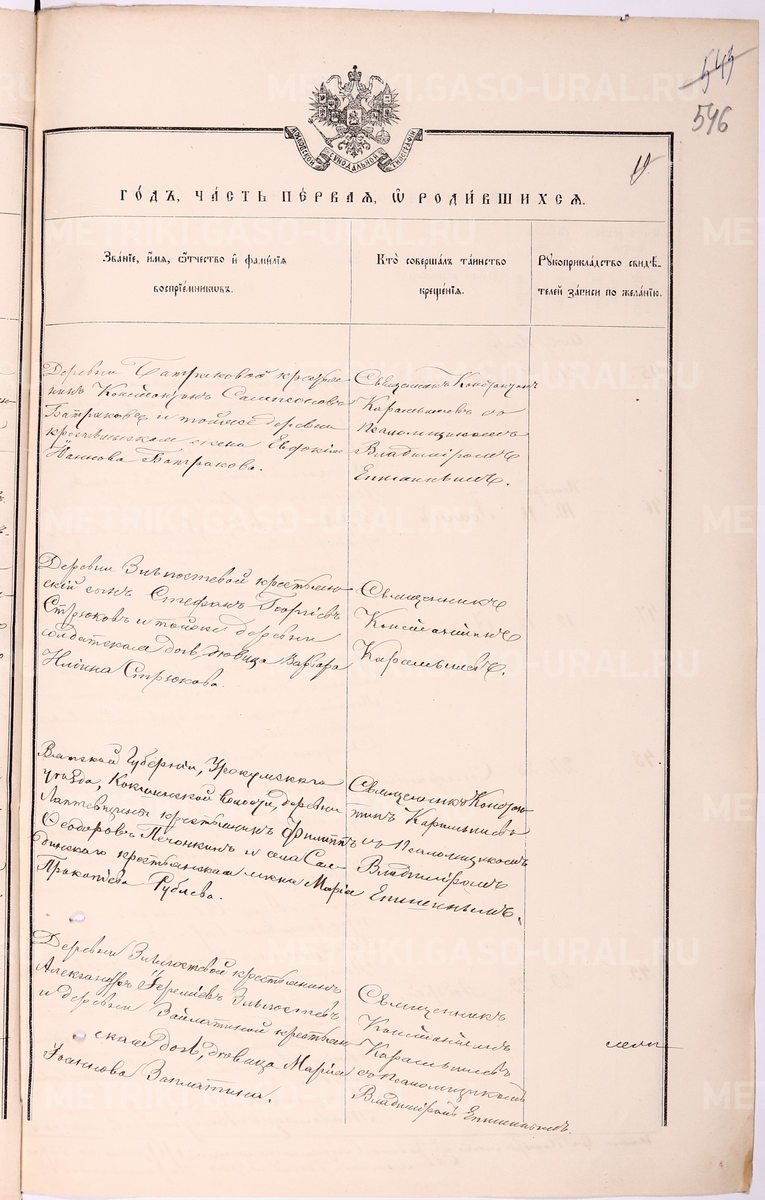 545
546
МОСКОВСКОЙ СѴНОДАЛЬНОЙ ТИПОГРАФІИ
ГОДЪ, ЧАСТЬ ПЕРВАЯ, Ѡ РОДИВШИХСЯ.
Званіе, имя, ѿчество и фамилія
воспріемниковъ.
Кто совершалъ таинство
крещенія.
Рукоприкладство свидѣ-
телей записи по желанію.
Деревни Батраковой крестья-
нинъ Константинъ Сампсоновъ
Батраковъ и тойже деревни
крестьянская жена Евфимія
Батракова.
Священникъ Константинъ
Карамышевъ со
Псаломщикомъ
Владиміромъ
Епишинымъ.
Деревни крестьян-
скій сынъ Стефанъ Георгіевъ
Стрюковъ и тойже деревни
солдатская дочь, дѣвица Варвара
Ильина Стрюкова.
Священникъ
Константинъ
Карамышевъ.
Вятской Губерніи, Уржумскаго
уѣзда, волости, деревни
крестьянинъ Филиппъ
Ѳеодоровъ и села
крестьянская жена Марія
Прокопіева Рублева.
Священникъ Констан-
тинъ Карамышевъ
съ Псаломщикомъ
Владиміромъ
Епишинымъ.
Деревни крестьянинъ
Александръ
и деревни Заплатиной крестьян-
ская дочь, дѣвица Марія
Іоаннова Заплатина.
Священникъ
Константинъ
Карамышевъ
съ псаломщикомъ
Владиміромъ Епишинымъ.
METRIKI.GASO-URAL.RU